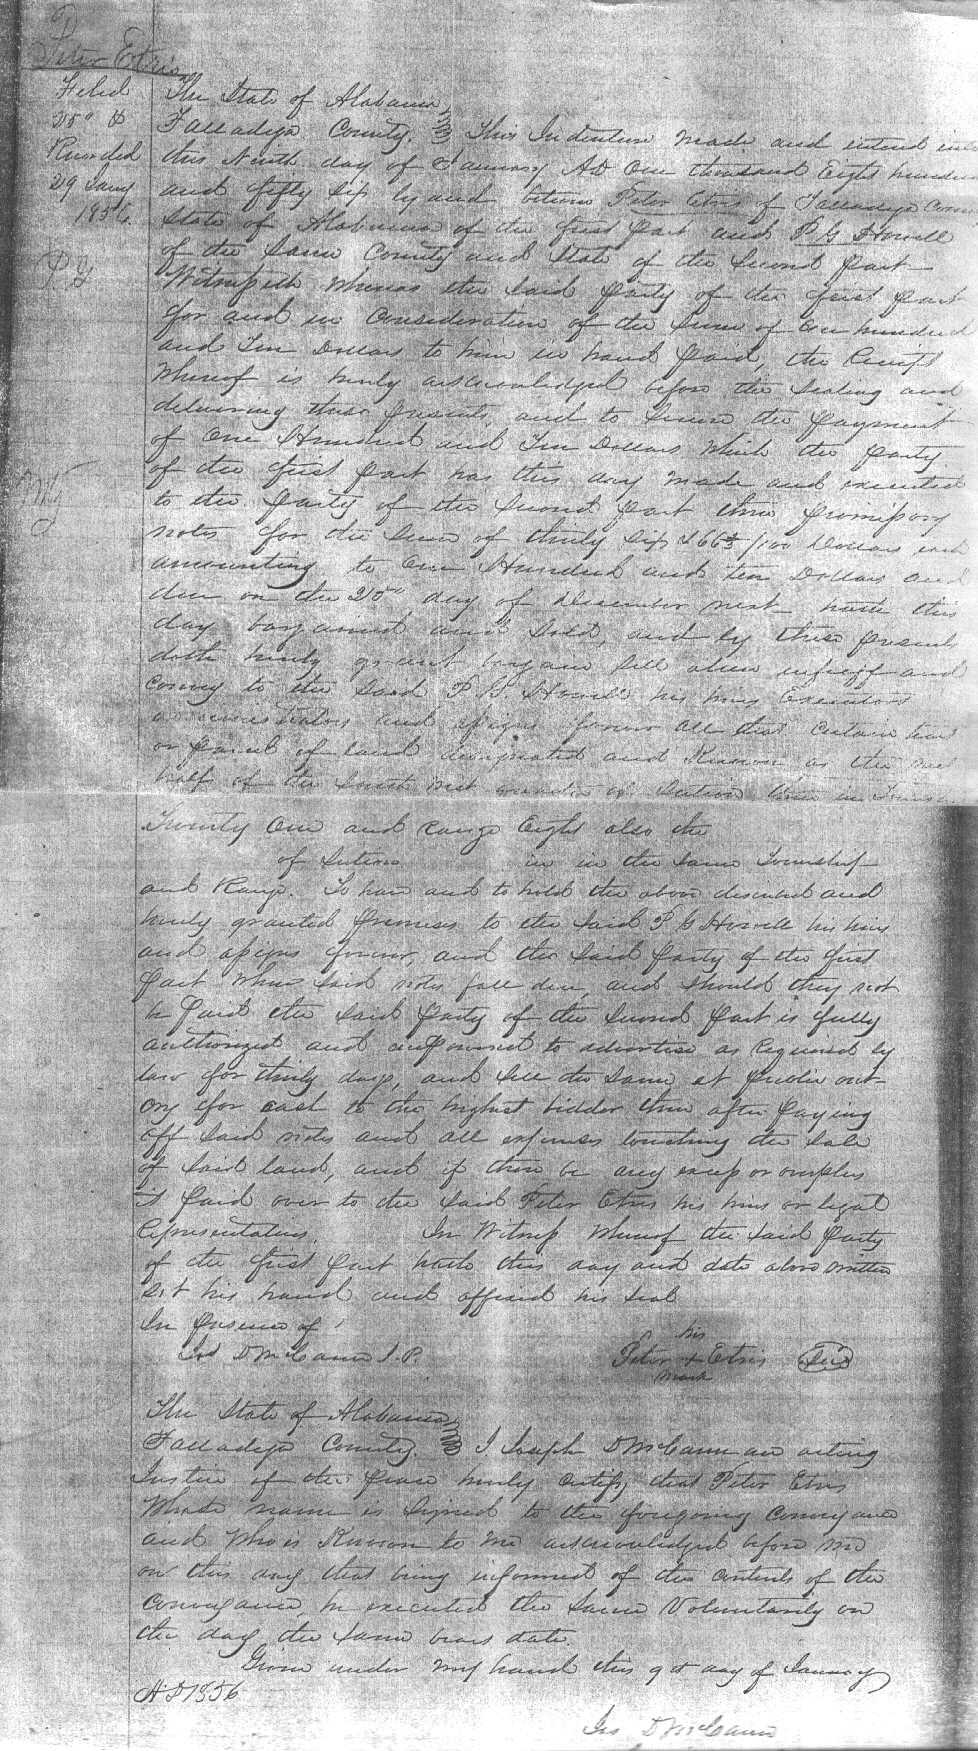 Peter Etris
Filed
25th &
Recorded
29 Jany
1856.
P. G
Mtg
The State of Alabama
Talladega County. This Indenture made and entered into
this Ninth day of January AD One thousand Eight hundred
and fifty six by and between Peter Etris of Talladega County
State of Alabama of the first part and P G Howell
of the Same County and State of the Second part
Witnesseth whereas the said party of the first part
for and in consideration of the sum of One hundred
and Ten Dollars to him in hand paid, the receipt
whereof is hereby acknowledged before the sealing and
delivering these presents, and to secure the payment
of One Hundred and Ten Dollars which the party
of the first part has this day made and executed
to the party of the second part three promissory
notes for the sum of thirty six & 66 2/3/100 Dollars each
amounting to One Hundred and ten Dollars and
due on the 25th day of December next hath this
day bargained and sold, and by these presents
doth hereby grant bargain sell alien enfeoff and
convey to the said P G Howell his heirs Executors
administrators and assigns forever all that certain
or parcel of land designated and Known as the
half of the South west quarter of Section in
Twenty One and range Eight also the
of Section in in the same Township
and Range. To have and to hold the above described and
hereby granted premises to the said P G Howell his heirs
and assigns forever, and the said party of the first
part when said notes fall due, and should they not
be paid the said party of the second part is fully
authorized and empowered to advertise as required by
law for thirty days, and sell the same at public out-
cry for cash to the highest bidder then after paying
off said notes and all expenses touching the sale
of said land, and if there be any excess or surplus
is paid over to the said Peter Etris his heirs or legal
representatives. In Witness whereof the said party
of the first part hath this day and date above written
set his hand and affixed his seal
In presence of
Jos D McCann J. P.
his
Peter + Etris Seal
mark
The State of Alabama
Talladega County. I Joseph D McCann an acting
Justice of the peace hereby certify that Peter Etris
whose name is signed to the foregoing conveyance
and who is Known to me acknowledged before me
on this day that being informed of the contents of the
conveyance, he executed the same Voluntarily on
the day the same bears date.
Given under my hand this 9th day of January
A D 1856
Jos D McCann